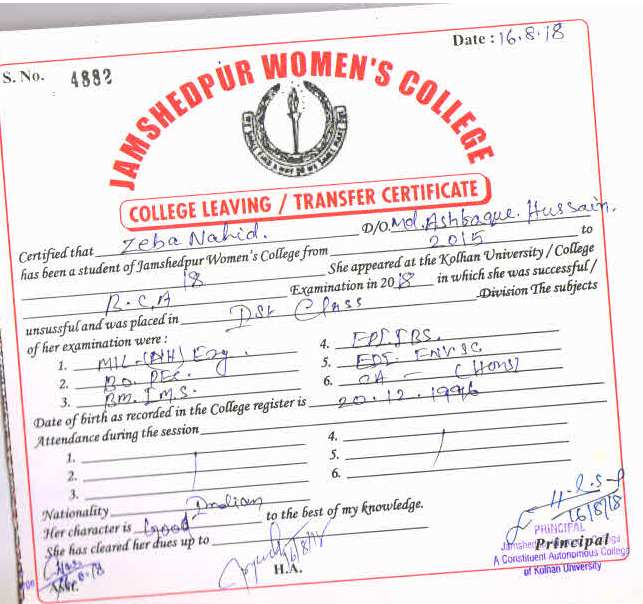 Date : 16.8.18
S. No. 4882
JAMSHEDPUR WOMEN'S COLLEGE
COLLEGE LEAVING / TRANSFER CERTIFICATE
Certified that Zeba Nahid. D/O. Md. Ashfaque Hussain.
has been a student of Jamshedpur Women's College from 2015 to
18 She appeared at the Kolhan University / College
B.C.A Examination in 2018 in which she was successful /
unsussful and was placed in Ist Class Division The subjects
of her examination were :
1. MIL-(NH) Eng.
2.
3. BM. IMS.
4.
5. ENVSC
6. (Hons)
Date of birth as recorded in the College register is 20.12.1996
Attendance during the session
1.
2.
3.
4.
5.
6.
Nationality Indian
Her character is Good to the best of my knowledge.
She has cleared her dues up to
16/8/18
H.A.
16/8/18
PRINCIPAL
Principal
A Constituent Autonomous College
of Kolhan University